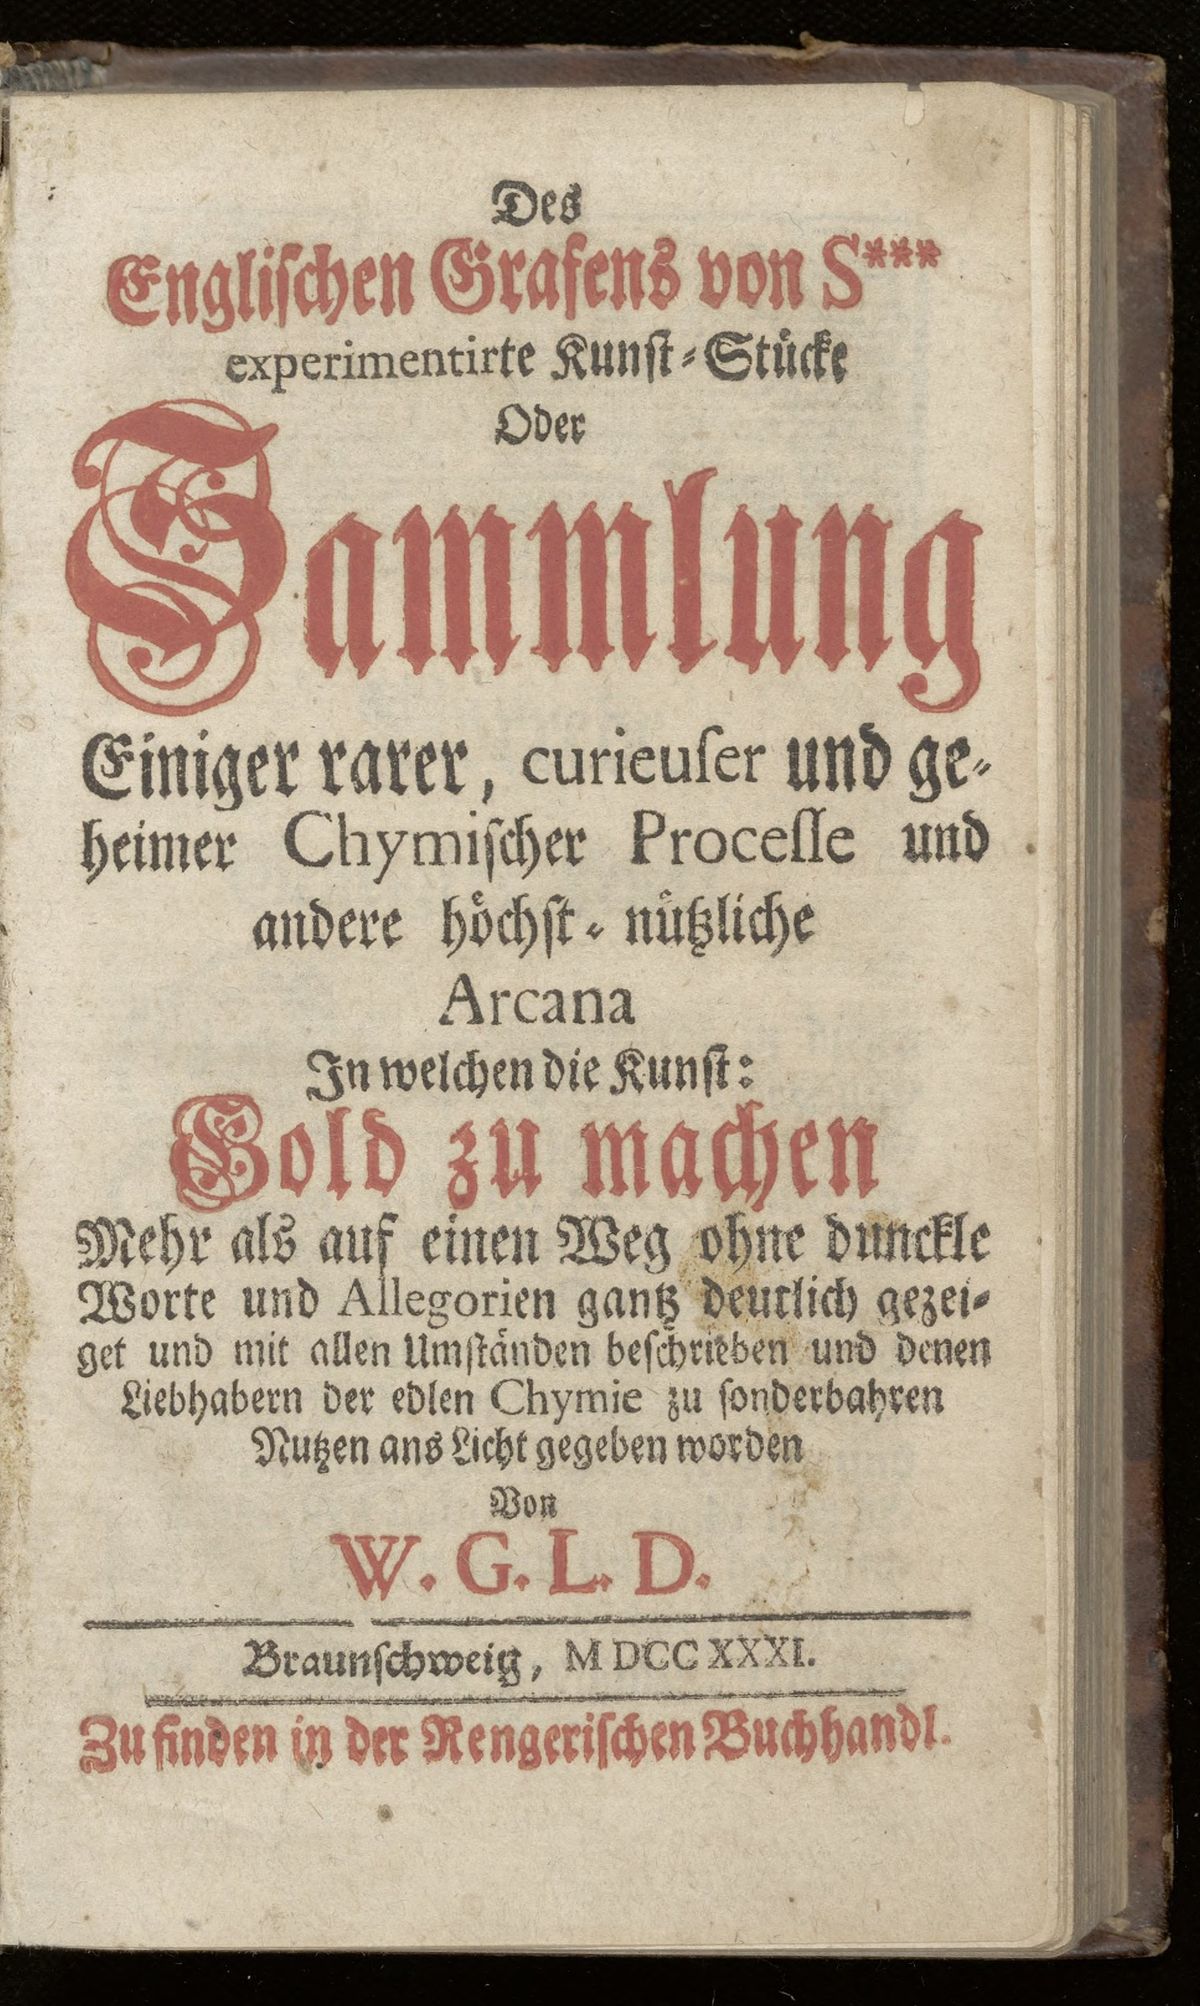 Des
Engliſchen Grafens von S***
experimentirte Kunſt-Stücke
Oder
Sammlung
Einiger rarer, curieuſer und ge-
heimer Chymiſcher Proceſſe und
andere höchſt-nützliche
Arcana
In welchen die Kunſt:
Gold zu machen
Mehr als auf einen Weg ohne dunckle
Worte und Allegorien gantz deutlich gezei-
get und mit allen Umſtänden beſchrieben und denen
Liebhabern der edlen Chymie zu ſonderbahren
Nutzen ans Licht gegeben worden
Von
W. G. L. D.
Braunſchweig, MDCCXXXI.
Zu finden in der Rengeriſchen Buchhandl.